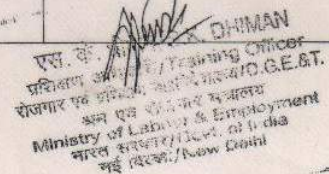 एस. के. DHIMAN
प्रशिक्षण /Training Officer
रोजगार एवं /D.G.E.&T.
श्रम एवं रोजगार मंत्रालय
Ministry of Labour & Employment
भारत सरकार/Govt. of India
नई दिल्ली/New Delhi